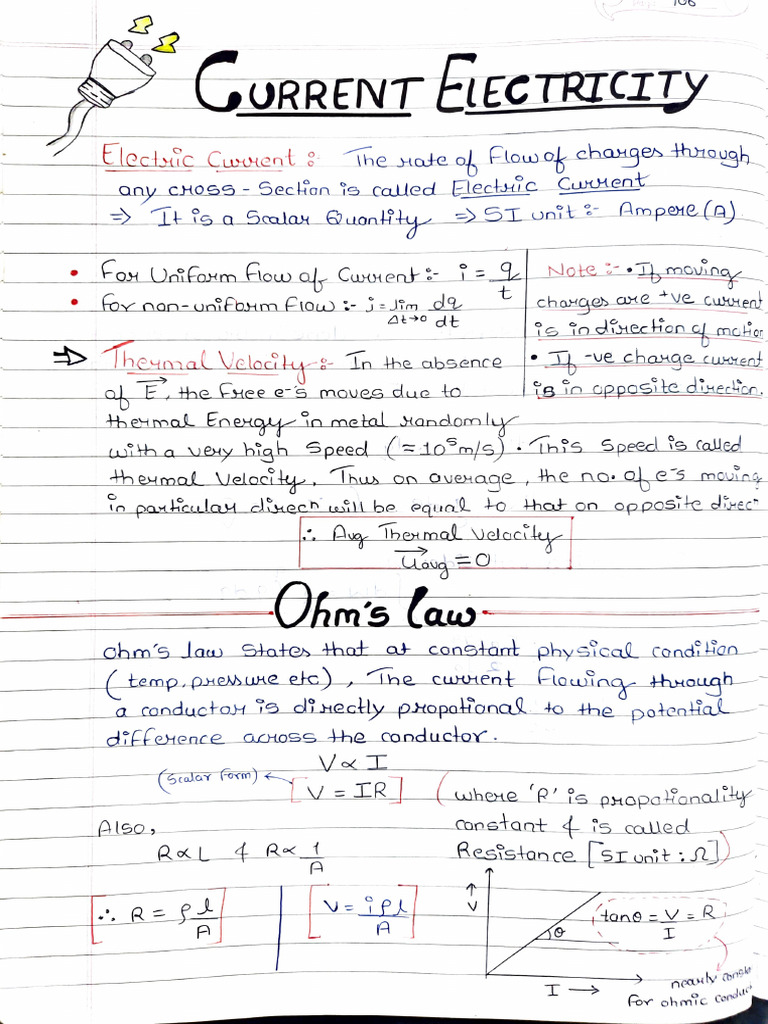 106
CURRENT ELECTRICITY
Electric Current :- The rate of Flow of charges through
any cross-Section is called Electric Current
⇒ It is a Scalar Quantity ⇒ SI unit :- Ampere (A)
• For Uniform Flow of Current :- i = q/t
• for non-uniform flow :- i = lim Δt→0 dq/dt
Note :- • If moving
charges are +ve current
is in direction of motion
• If -ve charge current
is in opposite direction.
⇒ Thermal Velocity :- In the absence
of E⃗, the free e⁻s moves due to
thermal Energy in metal randomly
with a very high speed (≈ 10⁵ m/s) . This Speed is called
thermal Velocity. Thus on average, the no. of e⁻s moving
in particular direcⁿ will be equal to that on opposite direcⁿ
∴ Avg Thermal Velocity
u⃗avg = 0
Ohm's Law
Ohm's law states that at constant physical condition
(temp, pressure etc), The current flowing through
a conductor is directly propotional to the potential
difference across the conductor.
V ∝ I
(Scalar Form) ← [V = IR]
(where 'R' is propotionality
constant & is called
Resistance [SI unit : Ω])
Also,
R ∝ L & R ∝ 1/A
∴ R = ρ l/A
V = iρl/A
↑
V
θ
I →
tanθ = V/I = R
nearly
for ohmic